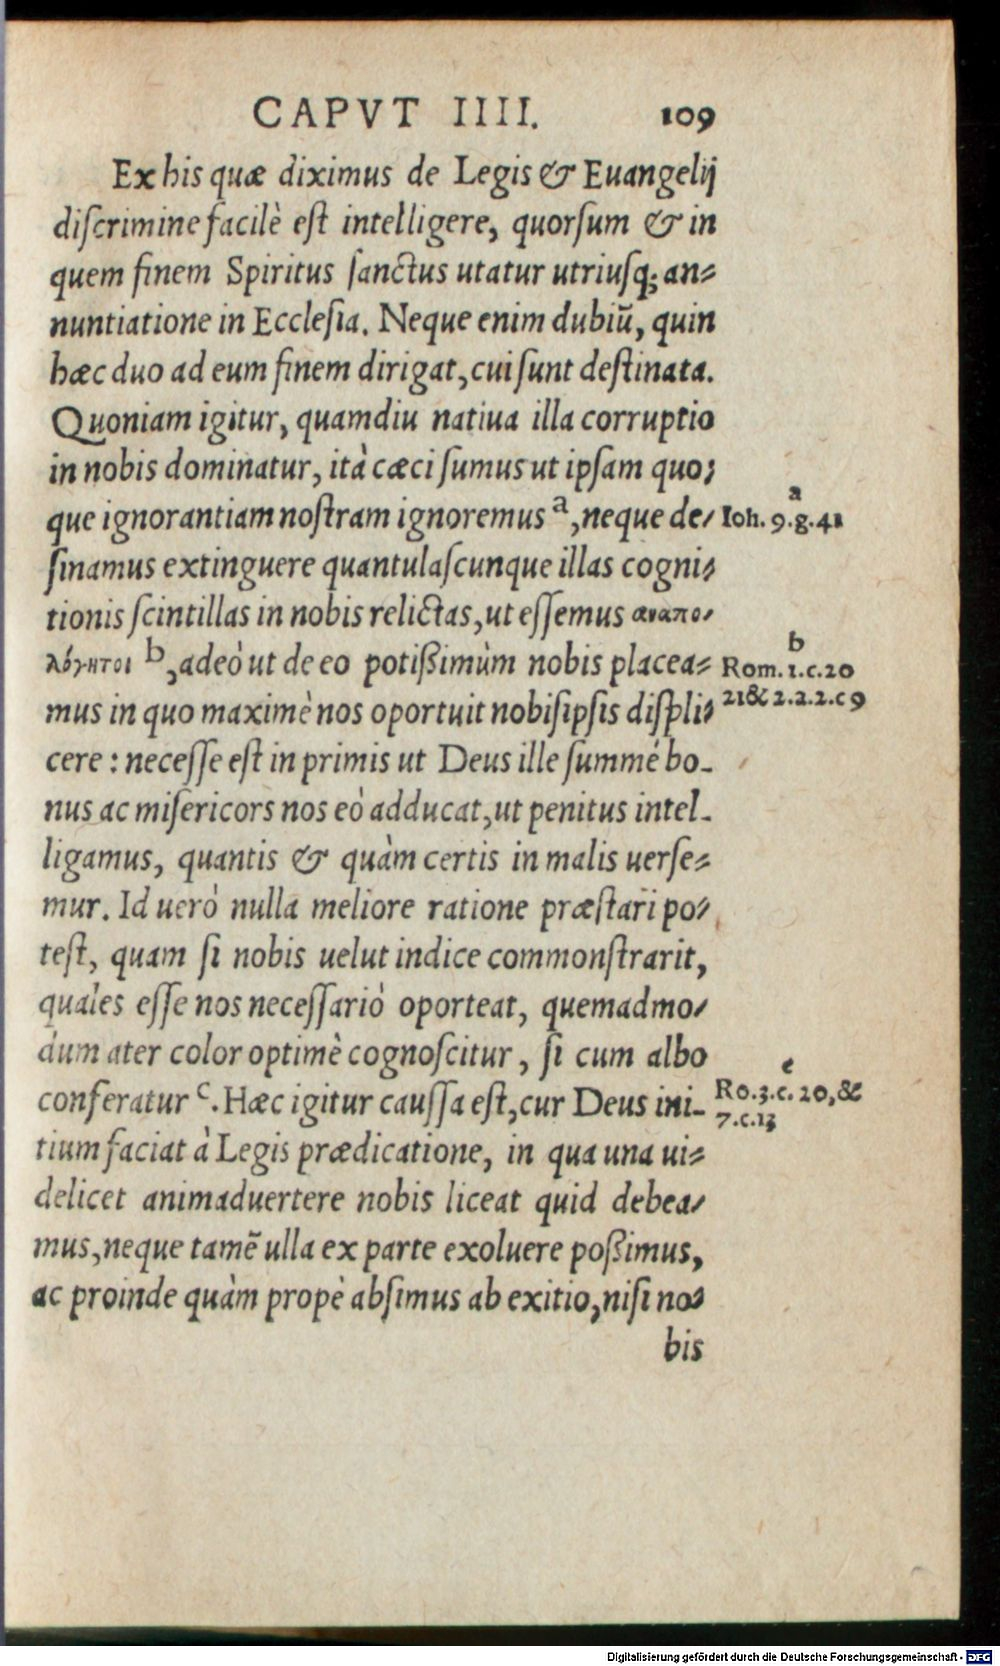 CAPVT IIII. 109
Ex his quæ diximus de Legis & Euangelij
discrimine facilè est intelligere, quorsum & in
quem finem Spiritus sanctus utatur utriusq; an-
nuntiatione in Ecclesia. Neque enim dubiũ, quin
hæc duo ad eum finem dirigat, cui sunt destinata.
Quoniam igitur, quamdiu natiua illa corruptio
in nobis dominatur, ità cæci sumus ut ipsam quo-
que ignorantiam nostram ignoremus ᵃ, neque de-
a
Ioh. 9.g.41
sinamus extinguere quantulascunque illas cogni-
tionis scintillas in nobis relictas, ut essemus αναπο-
λόγητοι ᵇ, adeò ut de eo potißimùm nobis placea-
b
Rom. 1.c.20
mus in quo maximè nos oportuit nobisipsis displi-
21& 2.a.2.c 9
cere : necesse est in primis ut Deus ille summé bo-
nus ac misericors nos eò adducat, ut penitus intel-
ligamus, quantis & quàm certis in malis uerse-
mur. Id uerò nulla meliore ratione præstari po-
test, quam si nobis uelut indice commonstrarit,
quales esse nos necessariò oporteat, quemadmo-
dum ater color optimè cognoscitur, si cum albo
conferatur ᶜ. Hæc igitur caussa est, cur Deus ini-
c
Ro.3.c. 20,&
7.c.13
tium faciat à Legis prædicatione, in qua una ui-
delicet animaduertere nobis liceat quid debea-
mus, neque tamẽ ulla ex parte exoluere poßimus,
ac proinde quàm propè absimus ab exitio, nisi no-
bis
Digitalisierung gefördert durch die Deutsche Forschungsgemeinschaft - DFG